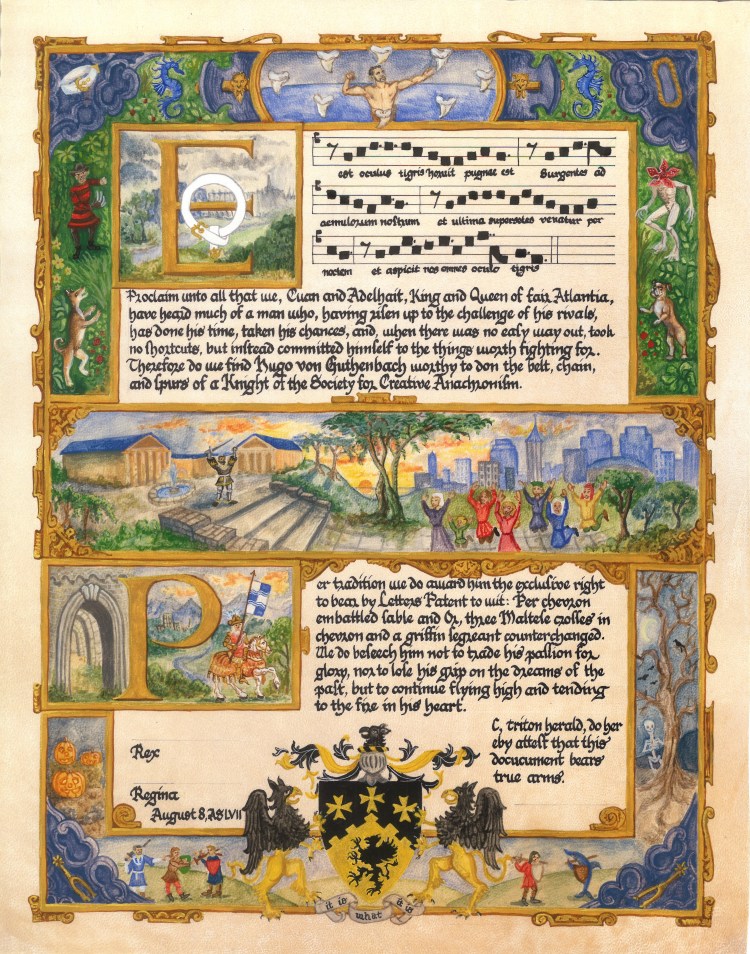 E
est oculus tigris horuit pugnae est Surgentes ad
aemulorum nostrum et ultima supersoles venatur per
noctem et aspicit nos omnes oculo tigris
Proclaim unto all that we, Cuan and Adelhait, King and Queen of fair Atlantia,
have heard much of a man who, having risen up to the challenge of his rivals,
has done his time, taken his chances, and, when there was no easy way out, took
no shortcuts, but instead committed himself to the things worth fighting for.
Therefore do we find Hugo von Guthenbach worthy to don the belt, chain,
and spurs of a Knight of the Society for Creative Anachronism.
Per tradition we do award him the exclusive right
to bear by Letters Patent to wit: Per chevron
embattled sable and Or, three Maltese crosses in
chevron and a griffin segreant counterchanged.
We do beseech him not to trade his passion for
glory, nor to lose his grip on the dreams of the
past, but to continue flying high and tending
to the fire in his heart.
C, triton herald, do her
eby attest that this
docucument bears
true arms.
Rex
Regina
August 8, AS LVII
it is what it is